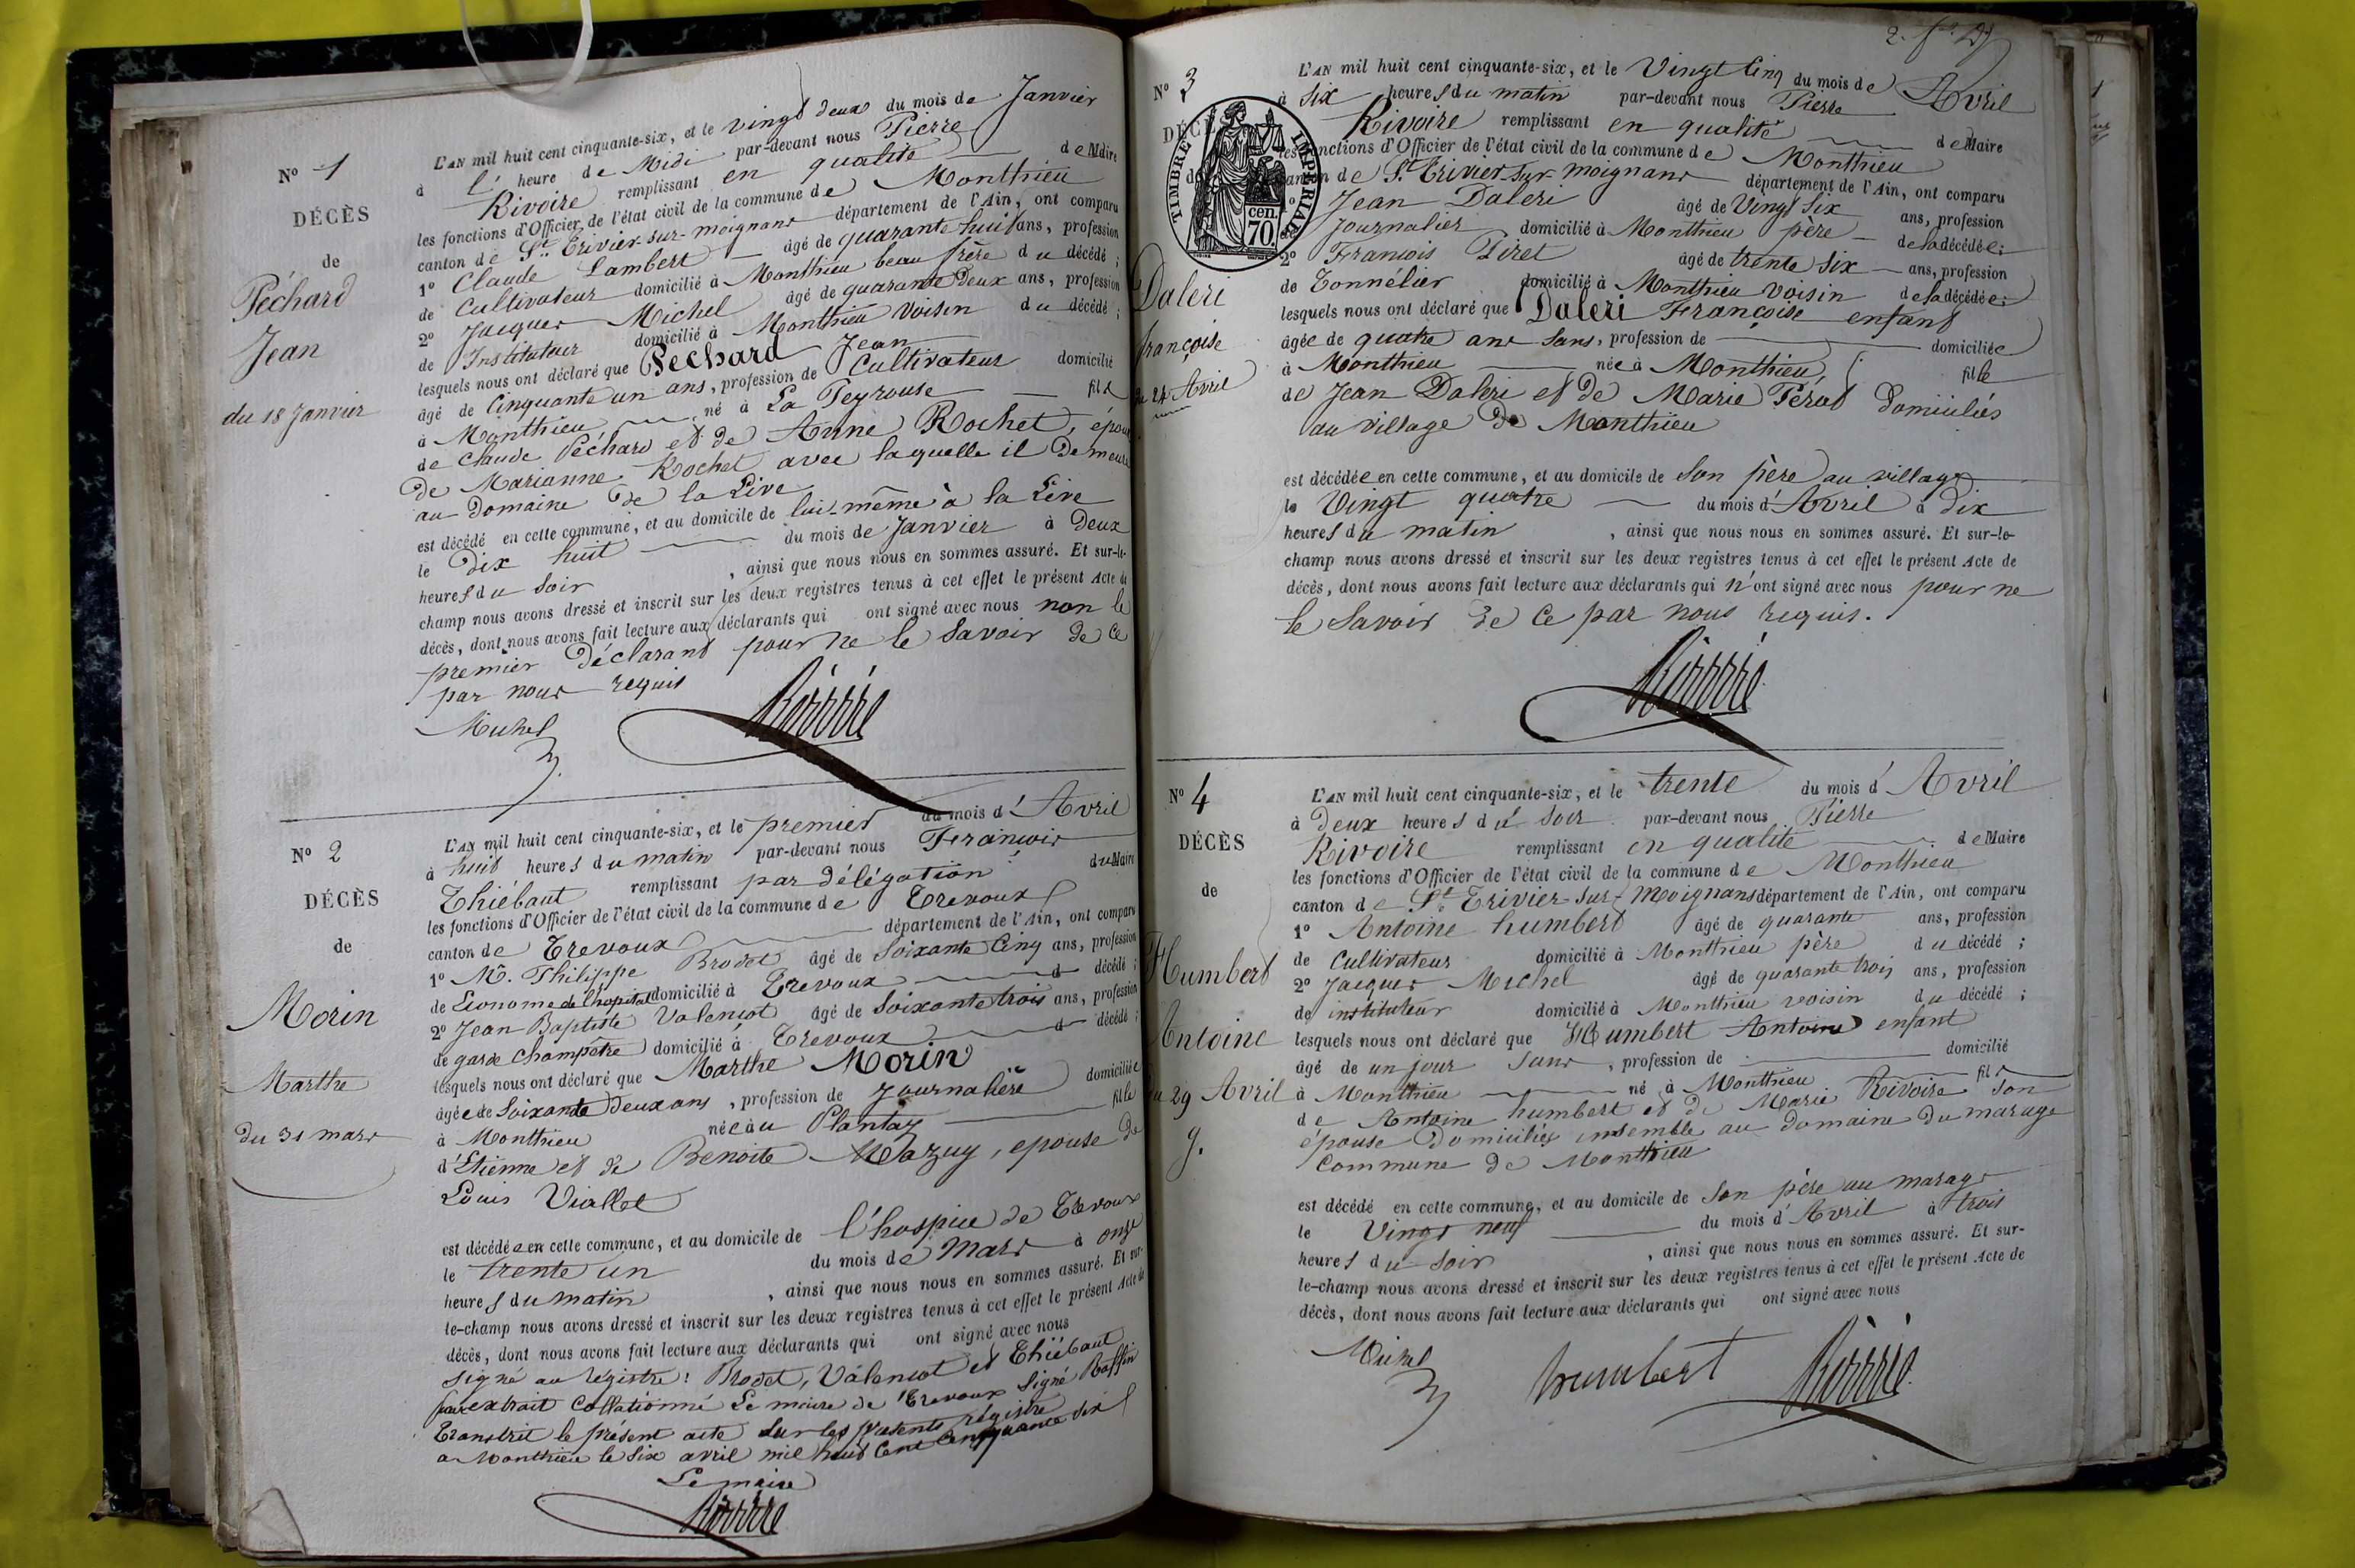 N° 1
DÉCÈS
de
Péchard
Jean
du 18 Janvier
L'AN mil huit cent cinquante-six, et le vingt deux du mois de Janvier
à l' heure de Midi par-devant nous Pierre
Rivoire remplissant en qualité de Maire
les fonctions d'Officier de l'état civil de la commune de Monthieu
canton de St. Trivier-sur-moignans département de l'Ain, ont comparu
1° Claude Lambert âgé de quarante huit ans, profession
de Cultivateur domicilié à Monthieu beau frère du décédé ;
2° Jacques Michel âgé de quarante Deux ans, profession
de Instituteur domicilié à Monthieu Voisin du décédé ;
lesquels nous ont déclaré que Péchard Jean
âgé de Cinquante un ans, profession de Cultivateur domicilié
à Monthieu né à La Peyrouse fils
de Claude Péchard et de Anne Rochet, époux
de Marianne Rochet avec laquelle il Demeure
au Domaine de la Live
est décédé en cette commune, et au domicile de lui-même à la Live
le Dix huit du mois de Janvier à Deux
heures du Soir , ainsi que nous nous en sommes assuré. Et sur-le-
champ nous avons dressé et inscrit sur les deux registres tenus à cet effet le présent Acte de
décès, dont nous avons fait lecture aux déclarants qui ont signé avec nous non le
premier Déclarant pour ne le Savoir de Ce
par nous requis
Michel
Rivoire
N° 2
DÉCÈS
de
Morin
Marthe
du 31 mars
L'AN mil huit cent cinquante-six, et le premier du mois d'Avril
à huit heures du matin par-devant nous François
Thiébaut remplissant par délégation du Maire
les fonctions d'Officier de l'état civil de la commune de Trevoux
canton de Trevoux département de l'Ain, ont comparu
1° M. Philippe Brodet âgé de Soixante Cinq ans, profession
de Econome de l'hopital domicilié à Trevoux d décédé ;
2° Jean Baptiste Valençot âgé de Soixante trois ans, profession
de garde Champêtre domicilié à Trevoux d décédé ;
lesquels nous ont déclaré que Marthe Morin
âgée de Soixante Deux ans , profession de Journalière domiciliée
à Monthieu née au Plantay fille
d'Etienne et de Benoite Mazuy, epouse de
Louis Viallet
est décédée en cette commune, et au domicile de l'hospice de Trevoux
le trente un du mois de Mars à onze
heures du matin , ainsi que nous nous en sommes assuré. Et sur-
le-champ nous avons dressé et inscrit sur les deux registres tenus à cet effet le présent Acte de
décès, dont nous avons fait lecture aux déclarants qui ont signé avec nous
signé au registre : Brodet, Valençot et Thiébaut
pour extrait Collationné Le maire de Trevoux Signé Raffin
Transcrit le présent acte sur les présents registre
a Monthieu le Six avril mil huit Cent Cinquante Six
Le maire
Rivoire
N° 3
DÉCÈ
Daleri
françoise
24 Avril
TIMBRE IMPÉRIAL
70 cen.
L'AN mil huit cent cinquante-six, et le Vingt Cinq du mois de Avril
à Six heures du matin par-devant nous Pierre
Rivoire remplissant en qualité de Maire
les fonctions d'Officier de l'état civil de la commune de Monthieu
canton de St. Trivier-sur-moignans département de l'Ain, ont comparu
1° Jean Daleri âgé de Vingt Six ans, profession
de Journalier domicilié à Monthieu père de la décédée ;
2° François Piret âgé de trente Six ans, profession
de Tonnélier domicilié à Monthieu Voisin de la décédée ;
lesquels nous ont déclaré que Daleri Françoise enfant
âgée de quatre ans Sans, profession de domiciliée
à Monthieu née à Monthieu, fille
de Jean Daleri et de Marie Pérat Domiciliés
au village de Monthieu
est décédée en cette commune, et au domicile de Son père au village
le Vingt quatre du mois d'Avril à Dix
heures du matin , ainsi que nous nous en sommes assuré. Et sur-le-
champ nous avons dressé et inscrit sur les deux registres tenus à cet effet le présent Acte de
décès, dont nous avons fait lecture aux déclarants qui n'ont signé avec nous pour ne
le Savoir de Ce par nous requis.
Rivoire
N° 4
DÉCÈS
de
Humbert
Antoine
29 Avril
L'AN mil huit cent cinquante-six, et le trente du mois d'Avril
à Deux heures du Soir par-devant nous Pierre
Rivoire remplissant en qualité de Maire
les fonctions d'Officier de l'état civil de la commune de Monthieu
canton de St. Trivier-sur-Moignans département de l'Ain, ont comparu
1° Antoine humbert âgé de quarante ans, profession
de Cultivateur domicilié à Monthieu père du décédé ;
2° Jacques Michel âgé de quarante trois ans, profession
de instituteur domicilié à Monthieu voisin du décédé ;
lesquels nous ont déclaré que Humbert Antoine enfant
âgé de un jour Sans , profession de domicilié
à Monthieu né à Monthieu fils
de Antoine humbert et de Marie Rivoire Son
épouse Domiciliés ensemble au domaine du marage
Commune de Monthieu
est décédé en cette commune, et au domicile de Son père au marage
le Vingt neuf du mois d'Avril à trois
heures du Soir , ainsi que nous nous en sommes assuré. Et sur-
le-champ nous avons dressé et inscrit sur les deux registres tenus à cet effet le présent Acte de
décès, dont nous avons fait lecture aux déclarants qui ont signé avec nous
Michel
humbert
Rivoire